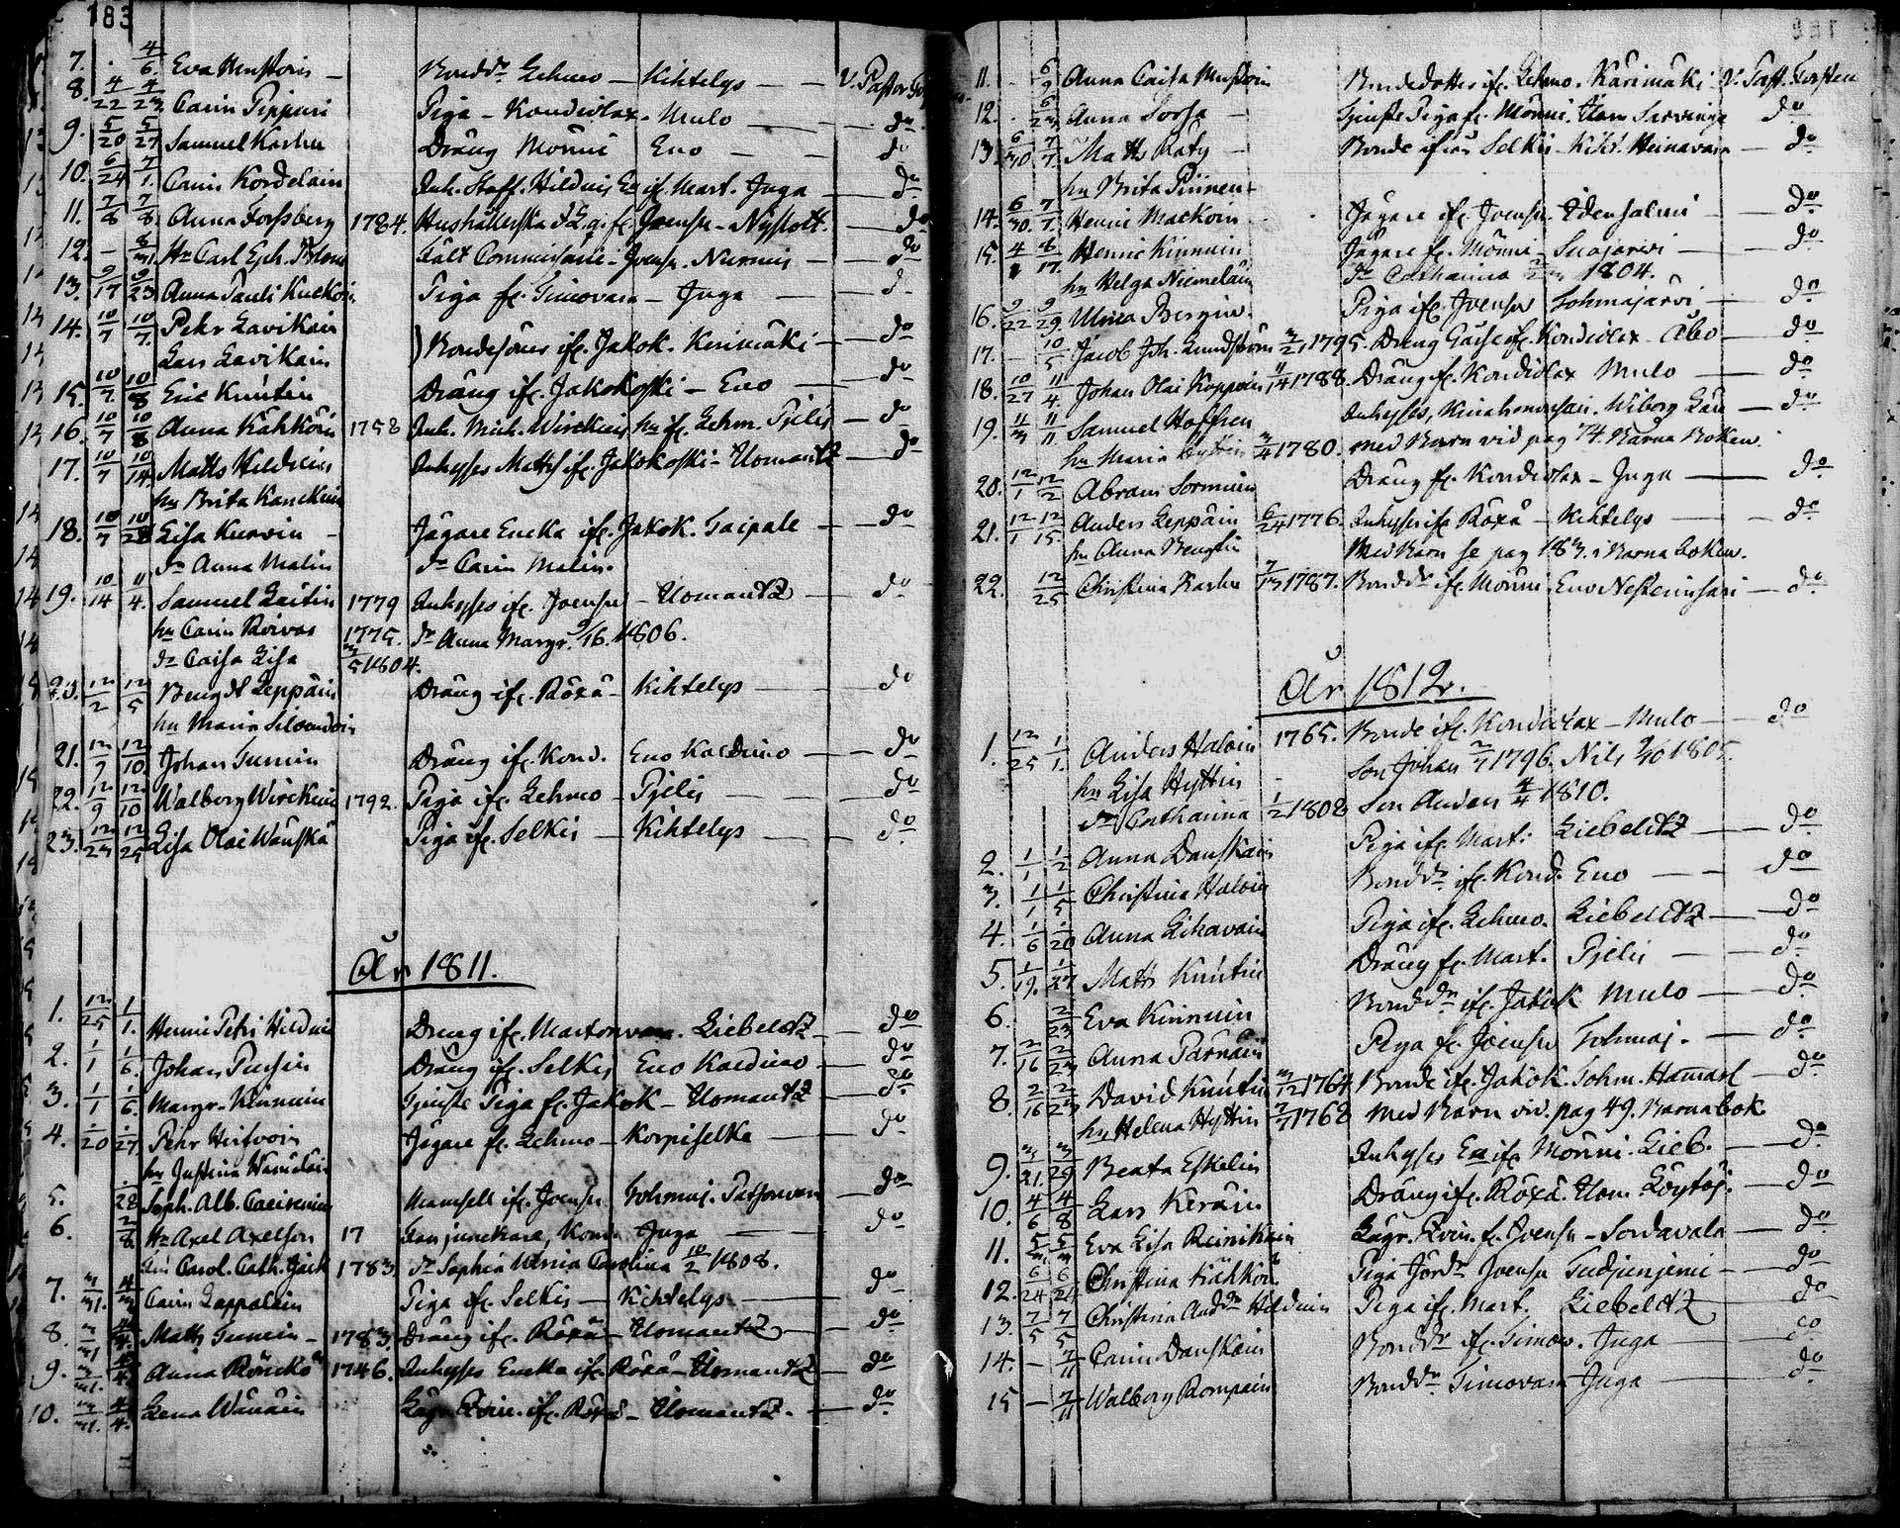 183
7. 4/6. Eva Mustoin — Bondd:r Lehmo — Kihtelys — V. Pastor
8. 4/22 4/23 Carin Tippuri Piga — Kondiolax — Mulo — do
9. 5/20 5/27 Samuel Karhu Dräng Mönni Eno — do
10. 6/24 7/1. Carin Kordelain Inh. Staff. Hildnis En. if. Mart. Juga — do
11. 7/8 7/8. Anna Forssberg 1784. Hushållerska if. Joensu — Nyslott. — do
12. — 8/31. H:r Carl Eph. Fält Commissarie — Joensu. Nurmis — do
13. 9/17 9/23 Anna Pauli Kuckoin Piga fr. Timovara — Juga — do
14. 10/7 10/7. Pehr Lavikain
Lars Lavikain ) Bondesöner if. Jakok. Kerimäki — do
15. 10/7 10/8 Eric Knutin Dräng if. Jakokoski — Eno — do
16. 10/7 10/8 Anna Kähköin 1758 Inh. Mich. Wirckins hu if. Lehm. Pjelis — do
17. 10/7 10/14. Matts Hildein Inhyses Matts if. Jakokoski — Ilomantz — do
hu Brita Kanckuin
18. 10/7 10/28 Lisa Kurvin — Jägare Encka if. Jakok. Taipale — do
dr Anna Malin dr Carin Malin.
19. 10/14 11/4. Samuel Laitin 1779 Inhyses if. Joensu — Ilomantz — do
hu Carin Roivas 1775. dr Anna Margr. 9/16. 1806.
dr Caisa Lisa 3/5 1804.
20. 12/2 12/5 Bengdt Leppäin Dräng if. Röxä — Kihtelys — do
hu Maria Silvendoin
21. 12/9 12/10. Johan Turunin Dräng if. Kond. Eno Kaldimo — do
22. 12/9 12/10 Walborg Wirckuin 1792. Piga if. Lehmo — Pjelis — do
23. 12/23 12/25 Lisa Olai Wänskä Piga if. Selkis — Kihtelys — do
År 1811.
1. 12/25 1/1. Henric Petri Hildein Dräng if. Martonvara. Liebeldtz — do
2. 1/1 1/6. Johan Pursin Dräng if. Selkis Eno Kaldimo — do
3. 1/1 1/6. Margr. Kinnuin Tjenste Piga fr. Jakok — Ilomantz — do
4. 1/20 1/27. Pehr Hirfvoin Jägare fr. Lehmo — Korpiselkä — do
hu Justina Wänskäin
5. 28 Soph. Alb. Mamsell if. Joensu Tohmaj. — do
6. 2/8. H:r Axel Axelsson 17 Fanjunckare Kond. Juga — do
Carol. Cath. Jack 1783. dr Sophia Ulrica Carolina 10/2 1808.
7. 3/31. 4/3 Carin Lappalain Piga if. Selkis — Kihtelys — do
8. 3/31 4/4. Matts Turunin — 1783. Dräng if. Röxä — Ilomantz — do
9. 3/31. 4/4. Anna Röncko 1746. Inhyses Encka if. Röxä — Ilomantz — do
10. 3/31. 4/4. Lena Wänäin if. Röxä — Ilomantz. — do
11. — 6/9 Anna Caisa Mustoin Bondedotter if. Lehmo. Kärimäki V. Past. Forsten
12. — 6/23 Anna Sorsa — Tjenste Piga fr. Mönni. Ilom Sarvinge do
13. 6/30 7/7. Matts Räty — Bonde ifrån Selkis Kiht. Heinavara — do
hu Brita Piinen
14. 6/30. 7/7. Henric Mackoin Jägare if. Joensu — Idensalmi — do
15. 4/8 17. Henric Kinnuin Jägare fr. Mönni — Suojärvi — do
hu Helga Niemeläin dr Catharina 1804.
16. 9/22 9/29 Ulrica Bergin. Piga if. Joensu Tohmajärvi — do
17. — 10/5 Jacob Joh. Lundström 3/21 1795. Dräng Gåsse if. Kondiolax — Åbo — do
18. 10/27 11/4. Johan Olai Koppoin 11/14 1788. Dräng if. Kondiolax Mulo — do
19. 11/3 11/11 Samuel Hoffren Inhyses, Wiborg Län — do
hu Maria Hyttin 3/4 1780. med Barn vid pag 74. Barna Boken.
20. 12/1 12/2 Abram Sormuin Dräng fr. Kondiolax — Juga — do
21. 12/1 12/15. Anders Leppäin 6/24 1776. Inhyses ifr Röxä — Kihtelys — do
hu Anna Bengtin Med Barn se pag 183. i Barna Boken.
22. 12/25 Christina Karhu 7/13 1787. Bondd:r if. Mönni. Eno — do
År 1812.
1. 12/25 1/1. Anders Halvin 1765. Bonde if. Kondiolax — Mulo — do
hu Lisa Hyttin Son Johan 2/7 1796. Nils 1805.
dr Catharina 1/2 1808 Son Anders 4/4 1810.
2. 1/1 1/2 Anna Danskain Piga if. Mart. Liebeldtz — do
3. 1/1 1/5 Christina Halvin Bondd:r if. Kond. Eno — do
4. 1/6 1/20 Anna Likavain Piga if. Lehmo. Liebeldtz — do
5. 1/19. 1/27 Matts Knutin Dräng fr. Mart. Pjelis — do
6. 2/23 Eva Kinnuin Bondd:r if. Jakok Mulo — do
7. 2/16 2/23 Anna Pärnäin Piga fr. Joensu Tohmaj. — do
8. 2/16 2/23 David Knutin 3/12 1764. Bonde if. Jakok. Tohm. — do
hu Helena Hyttin 7/7 1768 Med Barn vid. pag 49. Barnabok
9. 3/21. 3/29 Beata Eskelin Inhyses En if. Mönni. Lieb. — do
10. 4/6 4/8 Lars Keräin Dräng if. Röxä. Ilom. — do
11. 5/3 5/3 Eva Lisa Reinikain fr. Joensu — Sordavala — do
12. 6/24 6/24 Christina Kähkön Piga Joensu Tudjunjemi — do
13. 7/5 7/5 Christina And:dr Hildein Piga if. Mart. Liebeldtz — do
14. — 7/11 Carin Danskain Bondd:r if. Timov. Juga — do
15 — 7/11 Walborg Rompain Bondd:r Timovara Juga — do